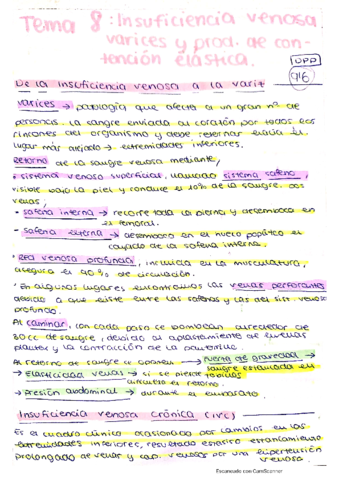 Tema 8: Insuficiencia venosa,
varices y prod. de con-
tención elástica.
UPP
(416)
De la insuficiencia venosa a la varit
Varices → patología que afecta a un gran nº de
personas. La sangre enviada al corazón por todos los
rincones del organismo y debe retornar
lugar más alejado → extremidades inferiores.
Retorno de la sangre venosa mediante,
· sistema venoso superficial, llamado sistema safeno,
visible bajo la piel y conduce el 10% de la sangre. Dos
venas;
- safena interna → recorre toda la pierna y desemboca en
el femoral.
- safena externa → desemboca en el hueco poplíteo el
cayado de la safena interna.
· Red venosa profunda, incluida en la musculatura,
asegura el 90% de circulación.
· En algunos lugares encontramos las venas perforantes
debido a que existe entre las safenas y las del sist. venoso
profundo.
Al caminar, con cada paso se bombean alrededor de
30cc de sangre, debido al aplastamiento de
plantar y la contracción de la pantorrilla.
Al retorno de sangre se oponen → fuerza de gravedad →
sangre estancada en
tobillos
→ Elasticidad venas → si se pierde
dificulta el retorno.
→ Presión abdominal → durante el embarazo.
Insuficiencia venosa crónica (IVC)
Es el cuadro clínico ocasionado por cambios en las
extremidades inferiores, resultado estasico estancamiento
prolongado de venar y cap. venosos por una hipertensión
venosa.
Escaneado con CamScanner